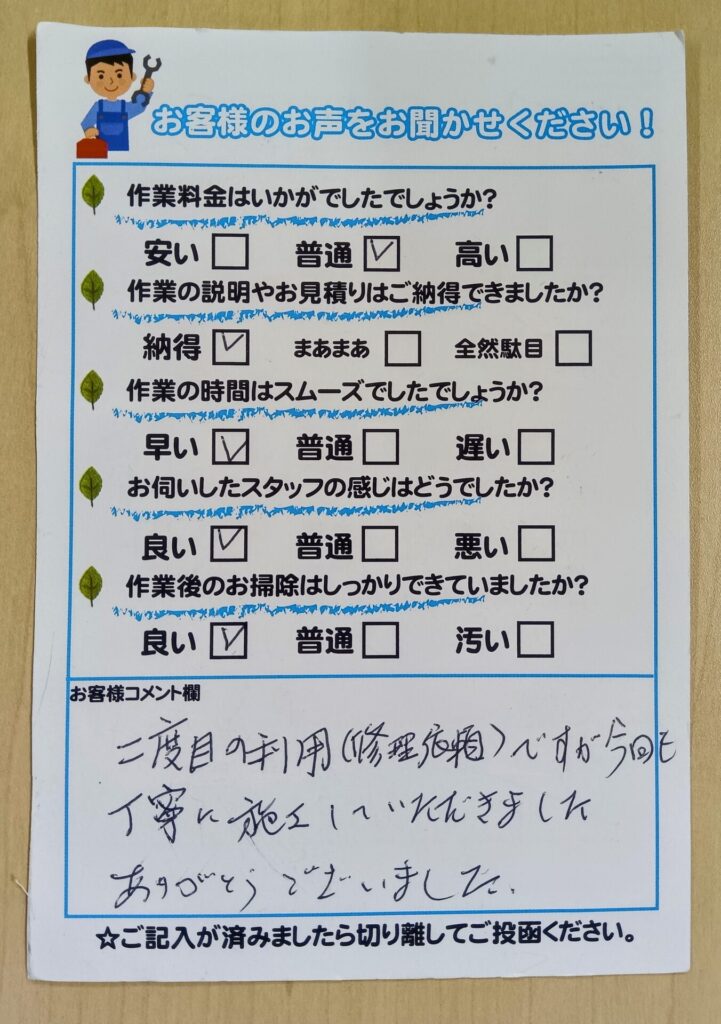 お客様のお声をお聞かせください！
作業料金はいかがでしたでしょうか？
安い □ 普通 ☑ 高い □
作業の説明やお見積りはご納得できましたか？
納得 ☑ まあまあ □ 全然駄目 □
作業の時間はスムーズでしたでしょうか？
早い ☑ 普通 □ 遅い □
お伺いしたスタッフの感じはどうでしたか？
良い ☑ 普通 □ 悪い □
作業後のお掃除はしっかりできていましたか？
良い ☑ 普通 □ 汚い □
お客様コメント欄
二度目の利用（修理依頼）ですが今回も
丁寧に施工していただきました
ありがとうございました.
☆ご記入が済みましたら切り離してご投函ください。